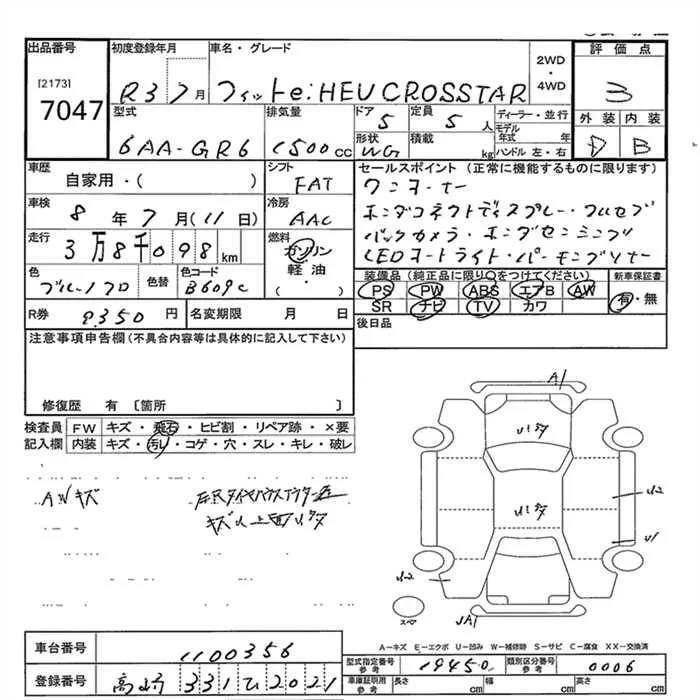 出品番号 初度登録年月 車名・グレード 2WD・4WD 評価点
[2173]
7047 R3 7月 フィット e:HEV CROSSTAR 3
型式 排気量 ドア 定員 ディーラー・並行 外装 内装
6AA-GR6 1500cc 5 5人 モデル年式 年 D B
形状 積載 ハンドル 左・右
WG kg
車歴 シフト セールスポイント(正常に機能するものに限ります)
自家用・( ) FAT ワンオーナー
車検 冷房 ホンダコネクトディスプレー・フルセグ
8年7月(11日) AAC バックカメラ・ホンダセンシング
走行 燃料 LEDオートライト・パーキングソナー
3万8千098km ガソリン
軽・油
( )
色 色替 色コード 装備品(純正品に限り○をつけてください) 新車保証書
ブルー/クロ B609C PS PW ABS エアB AW 有・無
SR ナビ TV カワ
R券 9350円 名変期限 月 日 後日品
注意事項申告欄(不具合内容等は具体的に記入して下さい)
修復歴 有 〔箇所 〕
検査員 FW キズ・飛石・ヒビ割・リペア跡・×要
記入欄 内装 キズ・汚レ・コゲ・穴・スレ・キレ・破レ
AWキズ
A1
U2
U1
U2
スペア
A-キズ E-エクボ U-凹み W-補修跡 S-サビ C-腐食 XX-交換済
車台番号 1100356
型式指定番号 参考 19450 類別区分番号 参考 0006
登録番号 高崎 331ひ2021
車庫証明用 参考 長さ cm 幅 cm 高さ cm